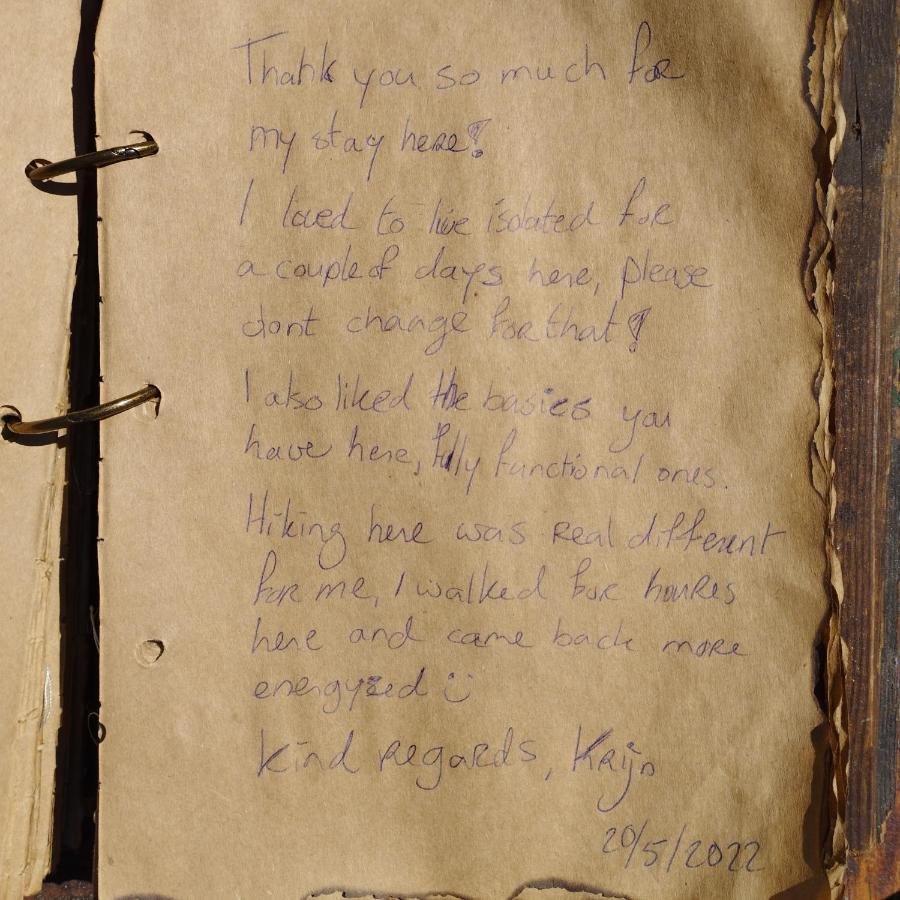 Thank you so much for
my stay here!
I loved to live isolated for
a couple of days here, please
dont change for that!
I also liked the basics you
have here, fully functional ones.
Hiking here was real different
for me, I walked for houres
here and came back more
energyzed :)
Kind regards, Krijn
20/5/2022